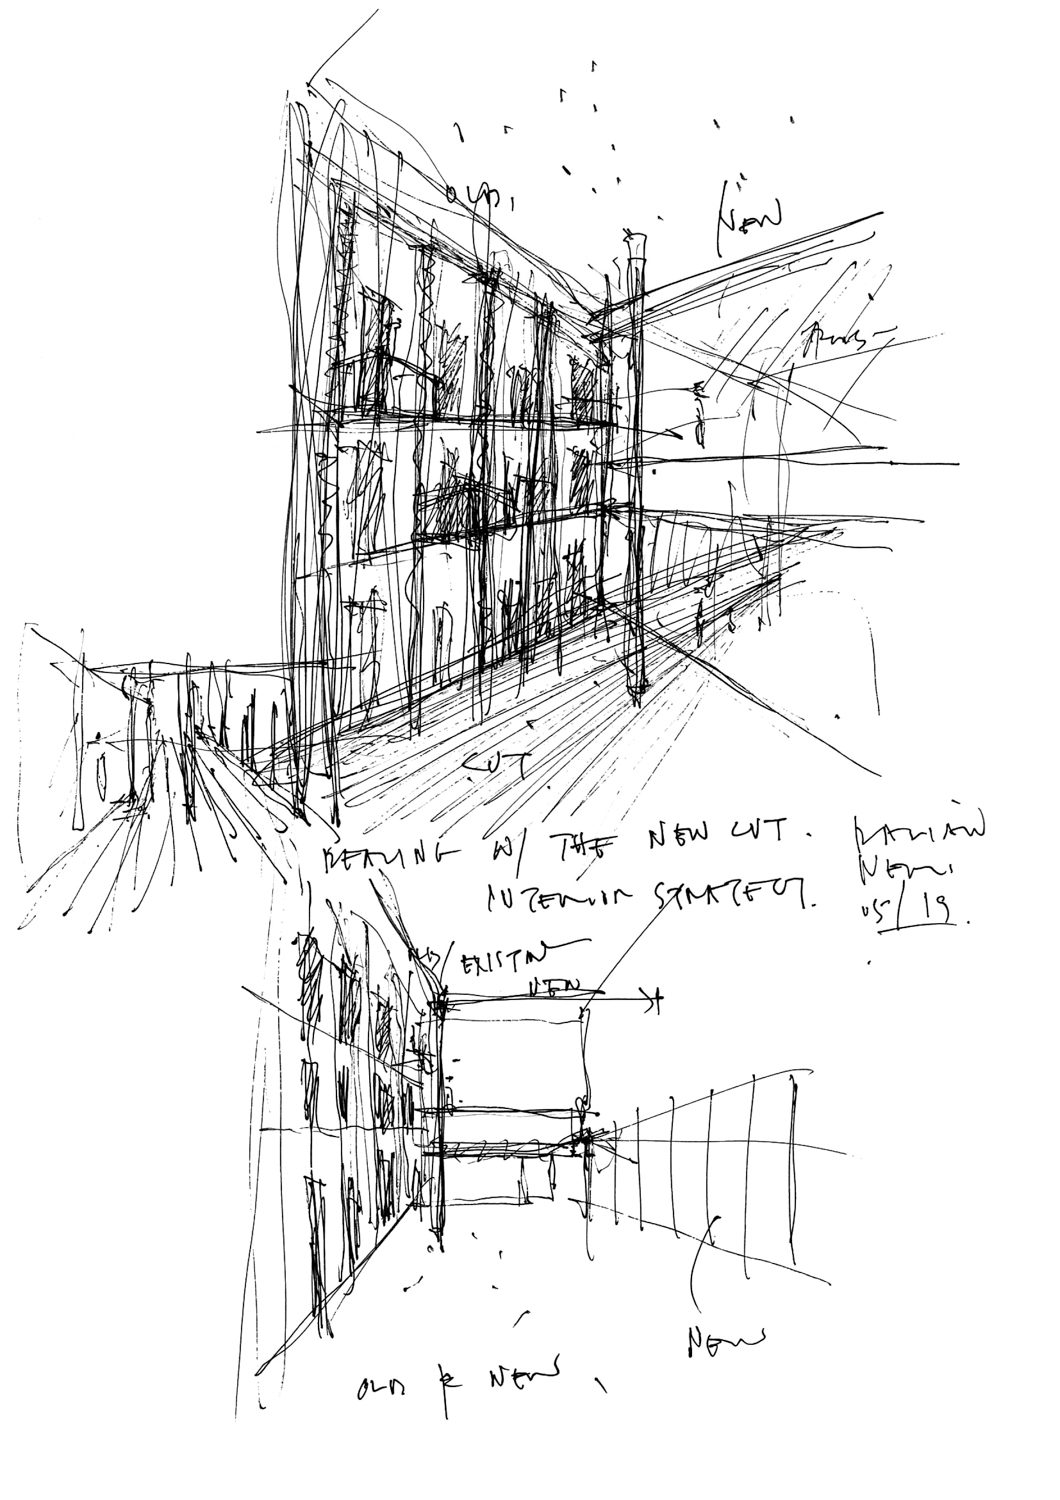 OLD,
NEW
CUT
DEALING W/ THE NEW CUT.
INTERIOR STRATEGY.
05/19.
/EXISTIN
NEW
NEW
OLD & NEW,